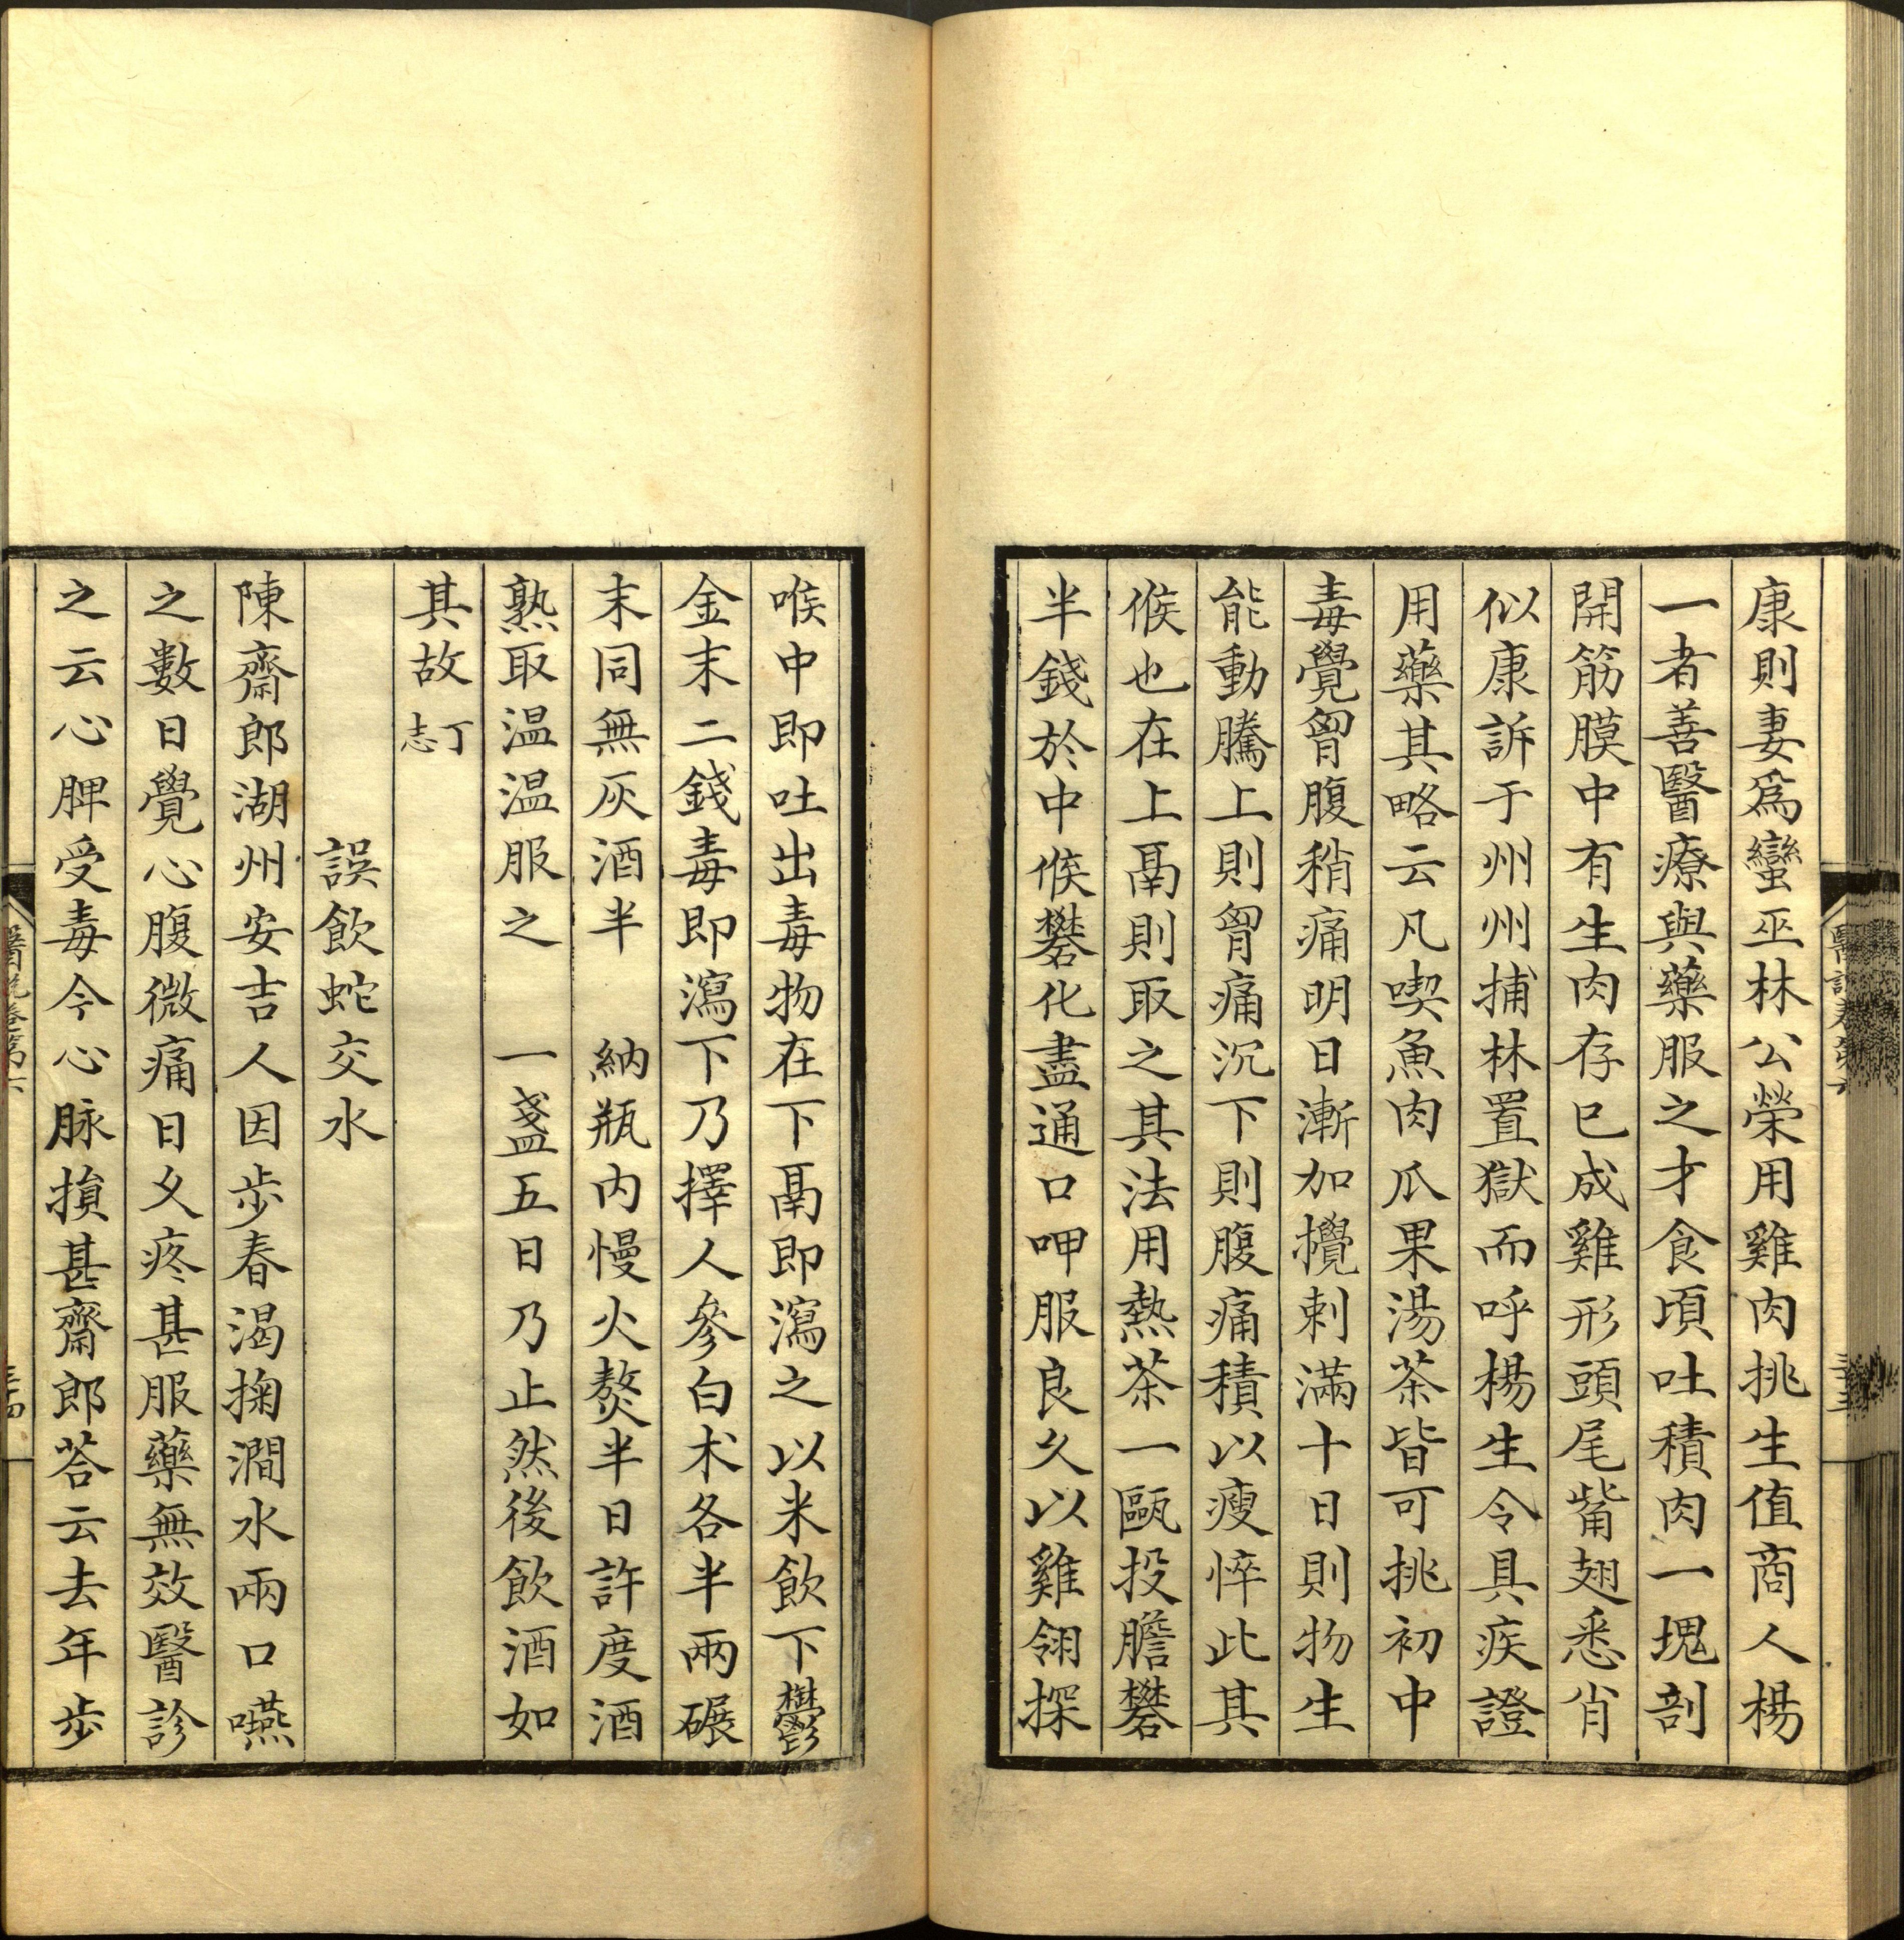 康則妻爲蠻巫林公榮用雞肉挑生值商人楊
一者善醫療與藥服之才食頃吐積肉一塊剖
開筋膜中有生肉存已成雞形頭尾觜翅悉肖
似康訴于州州捕林置獄而呼楊生令具疾證
用藥其略云凡喫魚肉瓜果湯茶皆可挑初中
毒覺胷腹稍痛明日漸加攪刺滿十日則物生
能動騰上則胷痛沉下則腹痛積以瘦悴此其
候也在上鬲則取之其法用熱茶一甌投膽礬
半錢於中候礬化盡通口呷服良久以雞翎探
喉中即吐出毒物在下鬲即瀉之以米飲下鬱
金末二錢毒即瀉下乃擇人參白术各半兩碾
末同無灰酒半 納瓶内慢火熬半日許度酒
熟取温温服之 一盞五日乃止然後飲酒如
其故丁志
誤飲蛇交水
陳齋郎湖州安吉人因步春渴掬澗水兩口嚥
之數日覺心腹微痛日乆疼甚服藥無效醫診
之云心脾受毒今心脉損甚齋郎荅云去年步
醫說卷第六
三十四